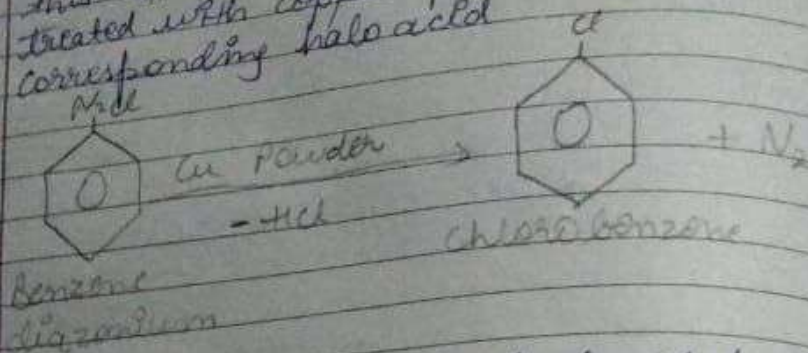 treated with
corresponding halo acid
N2Cl
Cl
Cu Powder
+ N2
-HCl
Chloro benzene
Benzene
diazonium